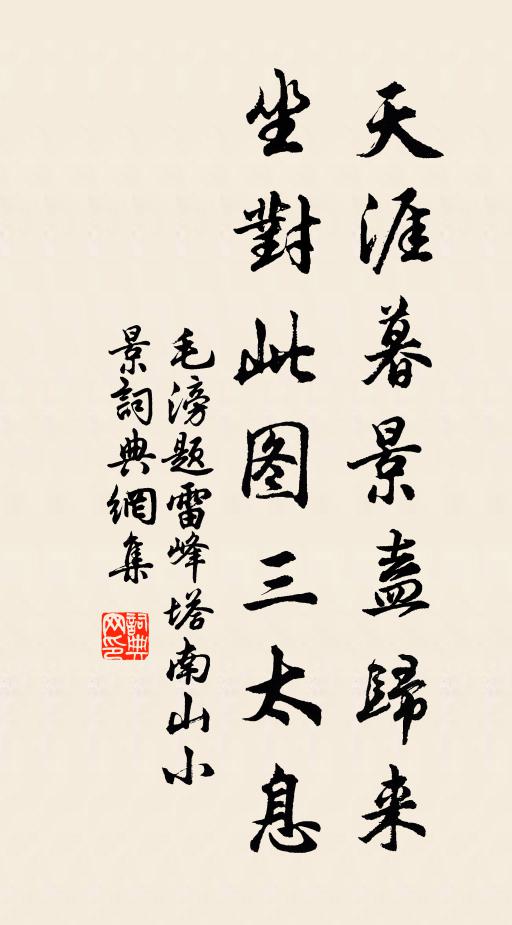 天涯暮景盍歸来
坐對此图三太息
毛滂题雷峰塔南山小
景詞典網集
詞典
网印